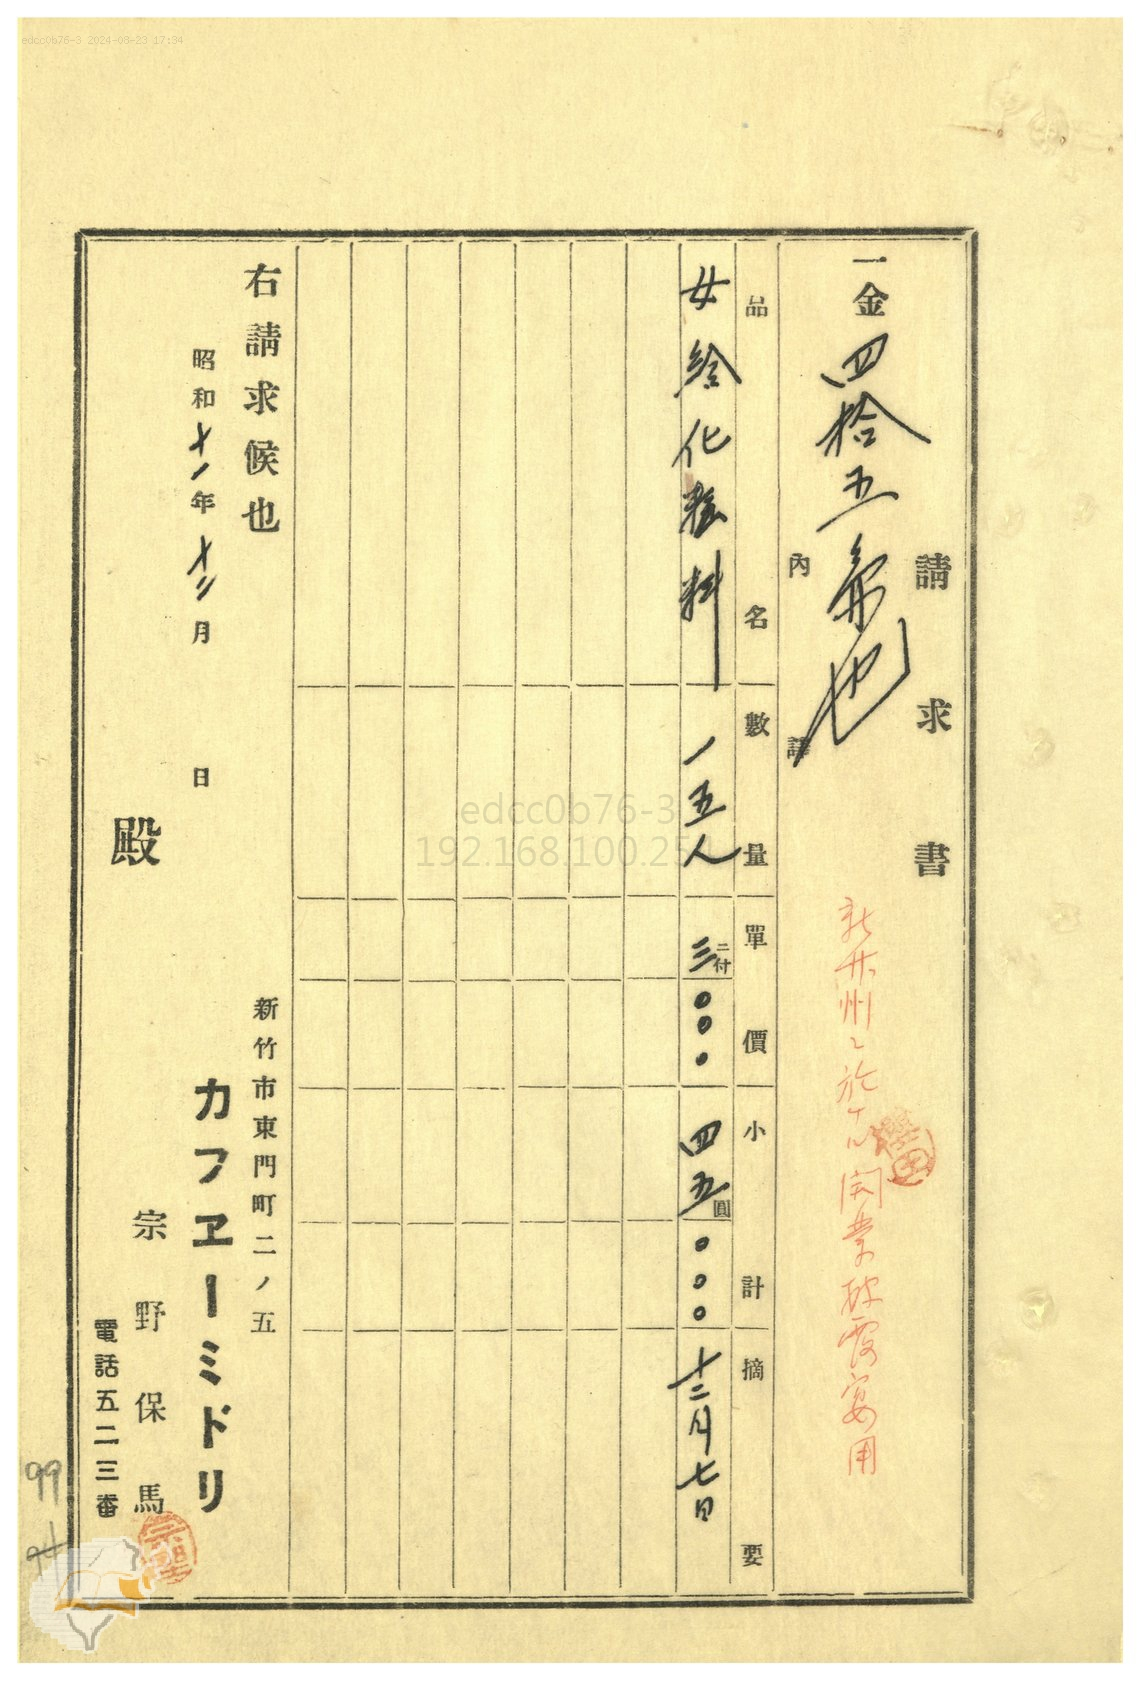 edcc0b76-3 2024-08-23 17:34
請求書
一金四拾五圓也
新竹州ニ於ケル開業披露宴用
內譯
品名 數量 單價 小計 摘要
女給化粧料 一五人 二付 三〇〇〇 四五圓〇〇〇 十二月七日
右請求候也
昭和十一年十二月 日
殿
新竹市東門町二ノ五
カフヱーミドリ
宗野保馬
電話五二三番
99
94
edcc0b76-3